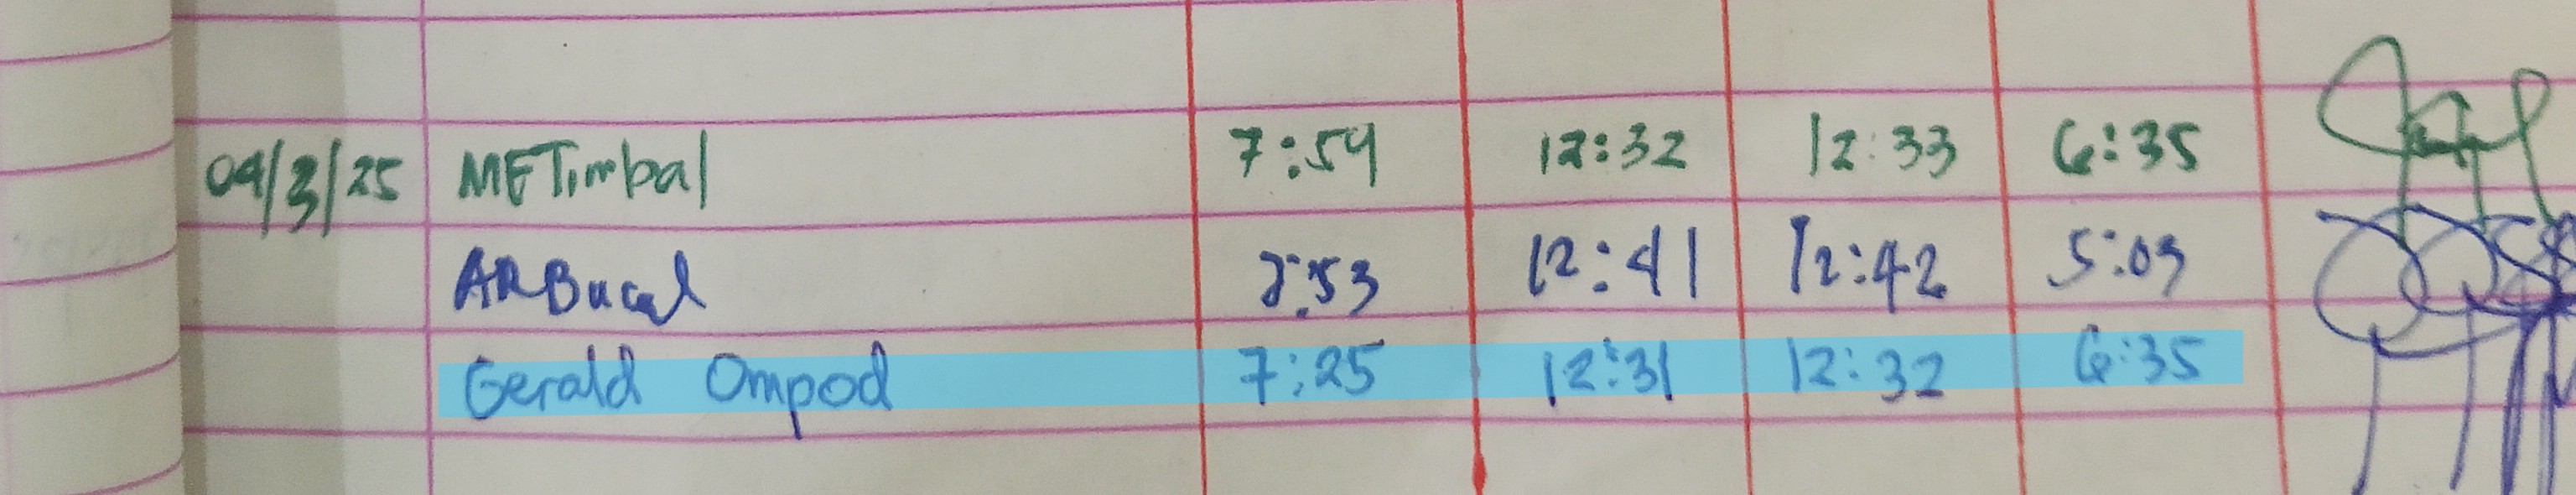 04/3/25 METimbal 7:59 12:32 12:33 6:35
ARBucal 7:53 12:41 12:42 5:09
Gerald Ompod 7:25 12:31 12:32 6:35